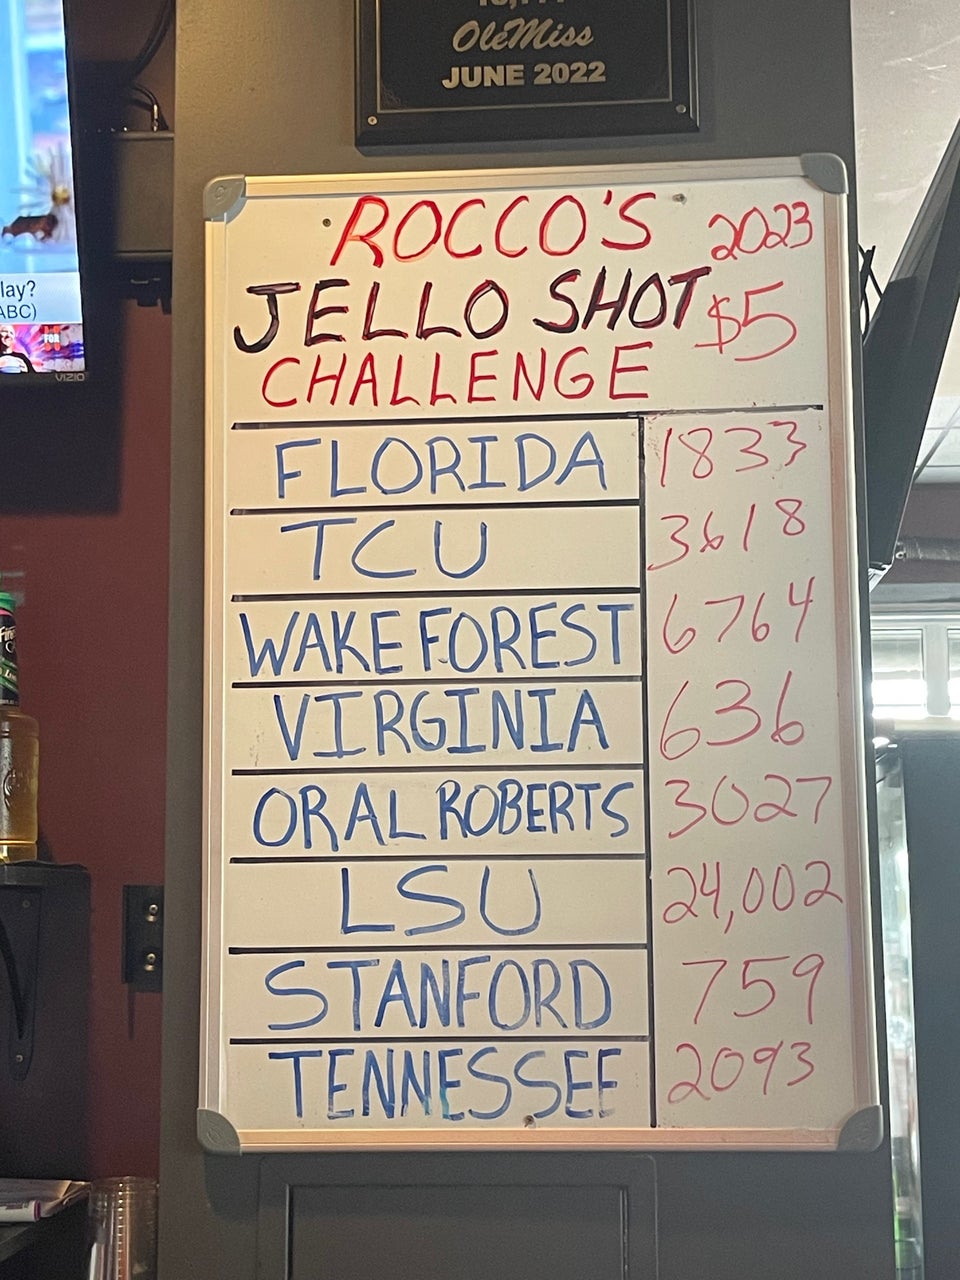 OleMiss
JUNE 2022
ROCCO'S 2023
JELLO SHOT $5
CHALLENGE
FLORIDA 1833
TCU 3618
WAKE FOREST 6764
VIRGINIA 636
ORAL ROBERTS 3027
LSU 24,002
STANFORD 759
TENNESSEE 2093
lay?
ABC)
FOR
VIZIO